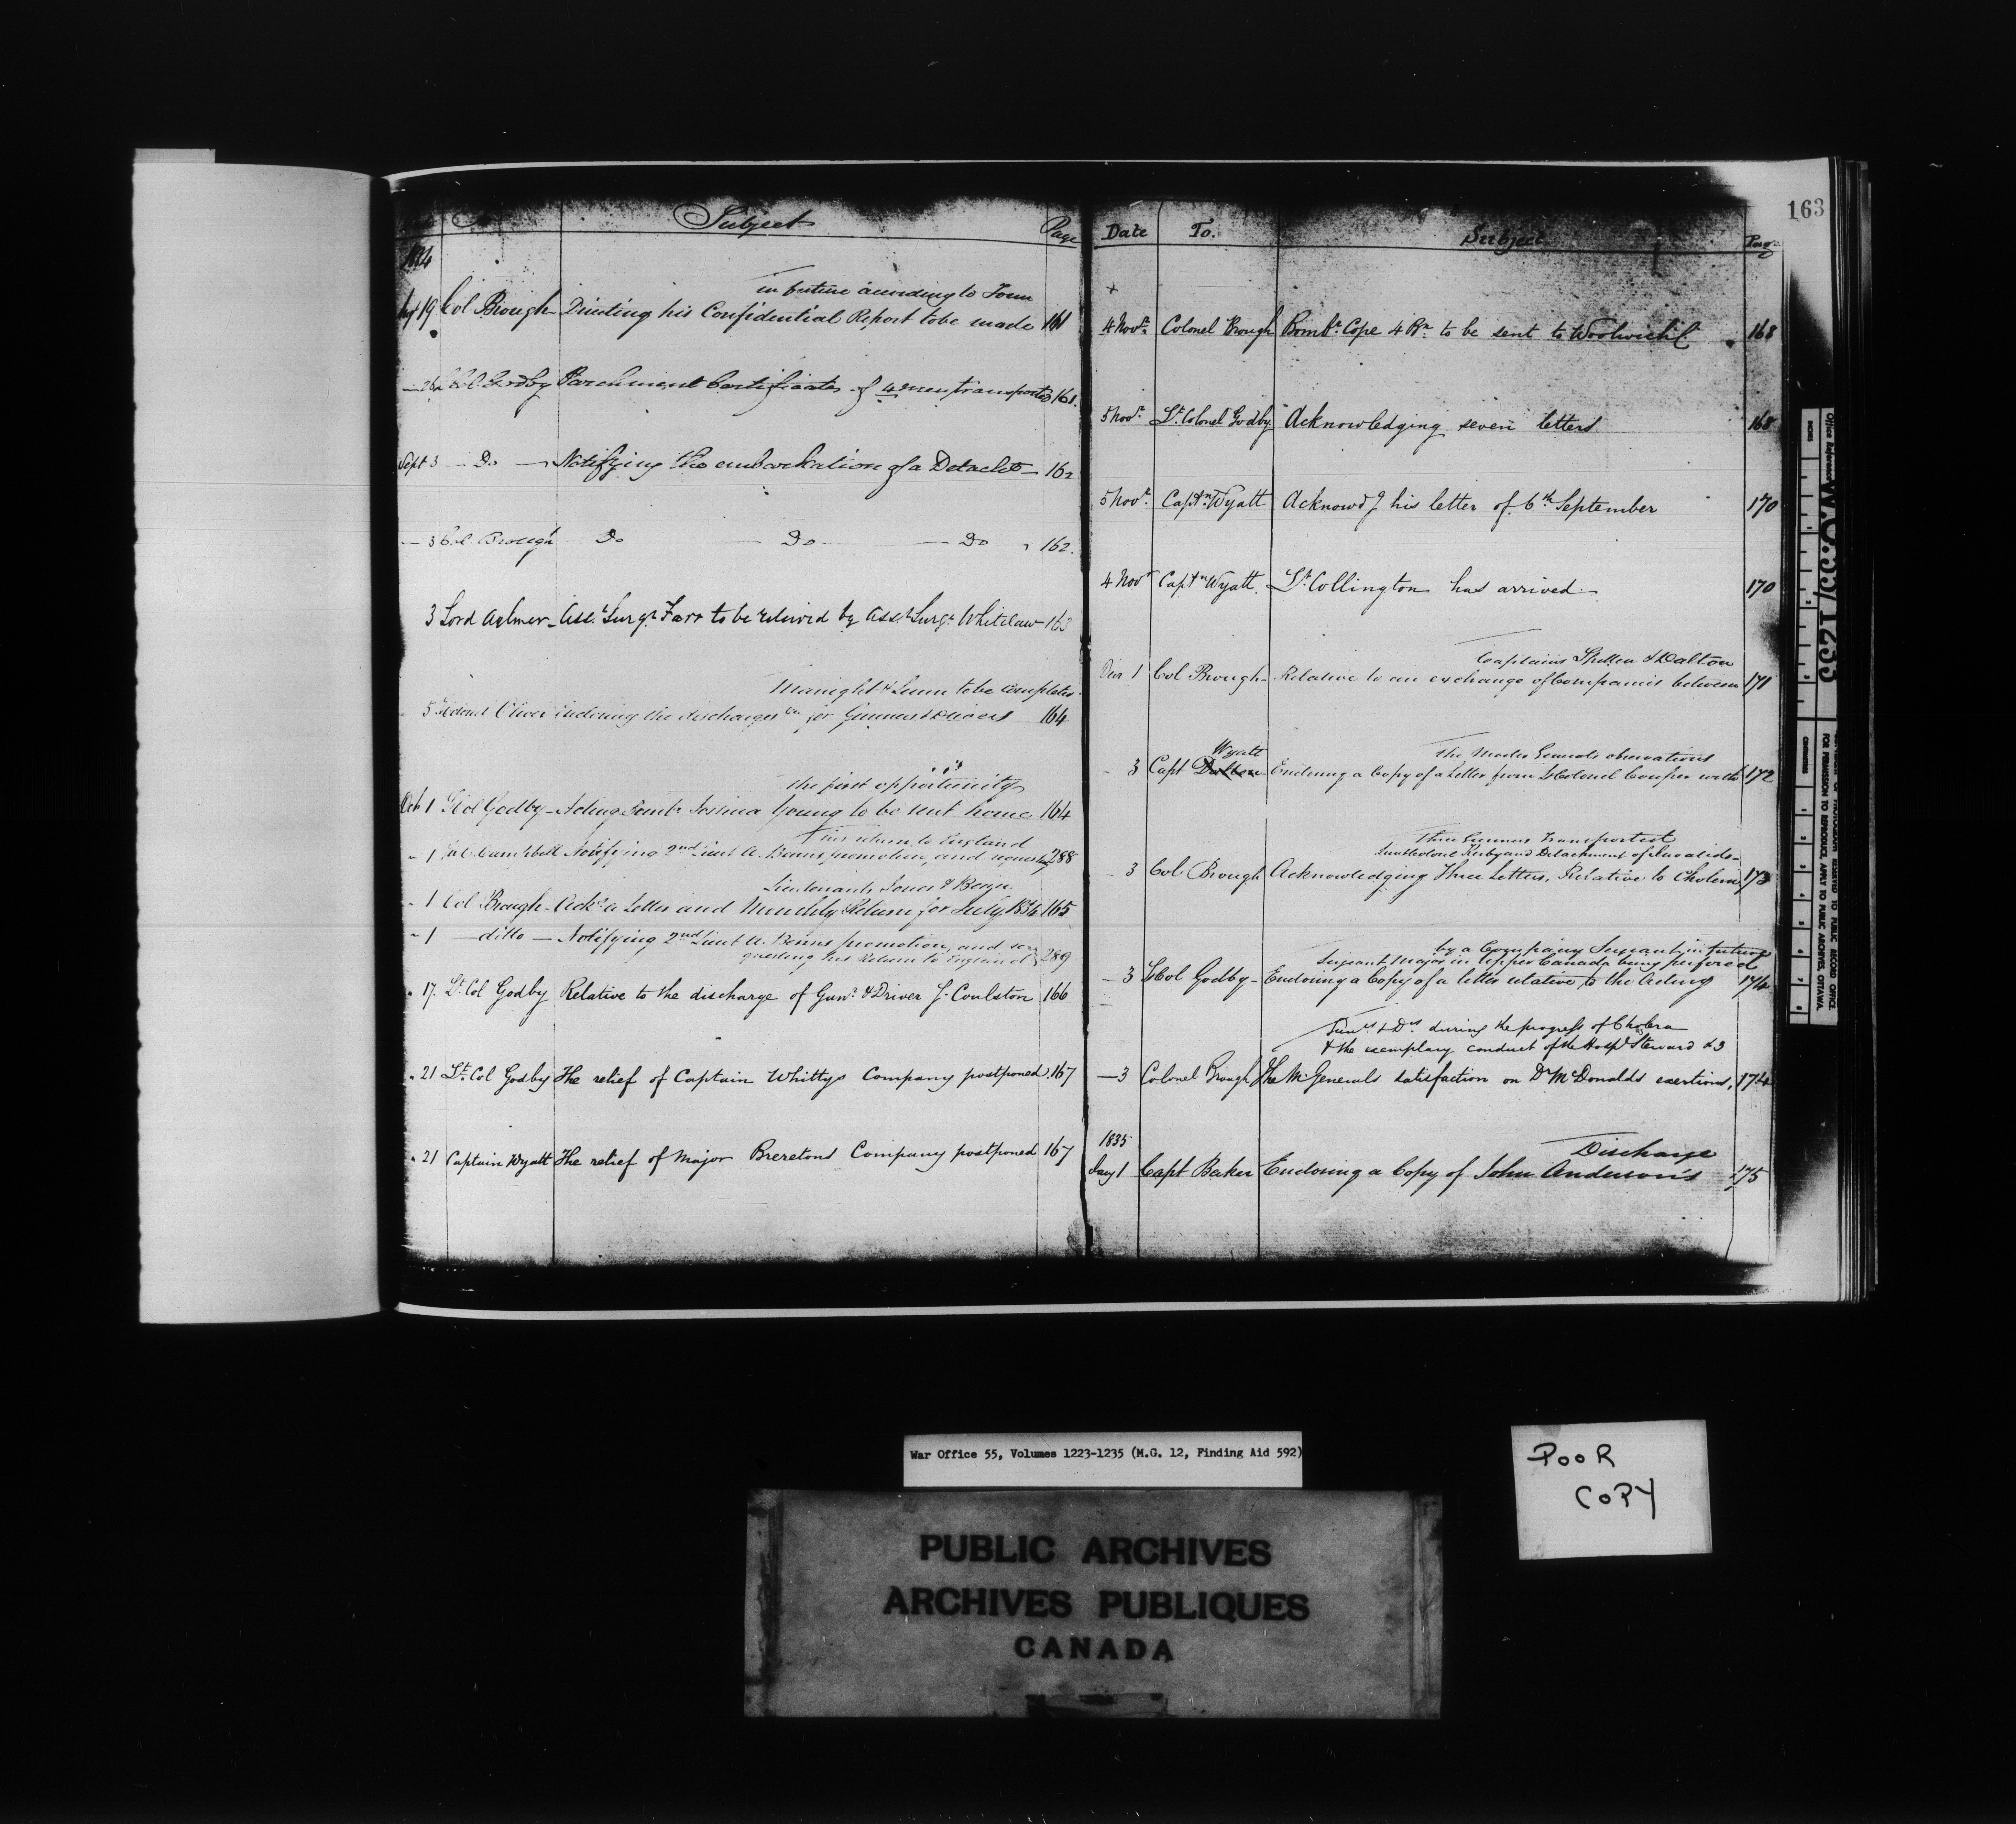 163
Subject
Page
1834
19 Col Brough - Directing his Confidential Report to be made
in future according to Form
161
Col Godby Parchment Certificates of 4 men transported 161.
Sept 3 - Do - Notifying the embarkation of a Detacht - 162
- 3 Col Brough Do - Do - Do 162.
3 Lord Aylmer - Asst Surgn Farr to be relieved by Asst Surgn Whitelaw - 163
to be completed
5 Colonel Oliver inclosing the discharges for Gunners & Drivers 164
the first opportunity
Oct 1 Godby - Acting Bombr Young to be sent home 164
his return to England
- 1 Campbell Notifying 2nd Lieut A. Benns promotion, and requesting 288
Lieutenants Jones & Benn
- 1 Col Brough - Ackg a Letter and Monthly Return for July 1834 165
- 1 - ditto - Notifying 2nd Lieut A. Benns promotion, and re-
questing his Return to England 289
" 17. Lt Col Godby Relative to the discharge of Gunr & Driver J. Coulston 166
" 21 Lt Col Godby The relief of Captain Whittys Company postponed. 167
" 21 Captain Wyatt The relief of Major Breretons Company postponed 167
Date To. Subject Page
+
4 Novr Colonel Brough Bombr Cope 4 Bn to be sent to Woolwich 168
5 Novr Lt Colonel Godby. Acknowledging seven letters 168
5 Novr Captn Wyatt Acknowdg his letter of 6th September 170
4 Novr Captn Wyatt. Lt Collington has arrived - 170
Captains & Dalton
Decr 1 Col Brough - Relative to an exchange of Companies between 171
Wyatt
the Master Generals observations
- 3 Capt Dalton - Enclosing a Copy of a Letter from Lt Colonel Couper with 172
Three Gunners Transported
Lieut Colonel Kirby and Detachment of Invalids -
- 3 Col Brough Acknowledging Three Letters, Relative to Cholera 173
by a Company Serjeant in future
Serjeant Major in Upper Canada being performed
- 3 Lt Col Godby - Enclosing a Copy of a letter relative to the Acting 174
Gunrs & Drs during the progress of Cholera
& the exemplary conduct of the Hospl Steward & 3
- 3 Colonel Brough The Mr Generals satisfaction on Dr McDonalds exertions, 174
1835
Discharge
Jany 1 Capt Baker Enclosing a Copy of John Anderson's 175
W.O.55/1235
War Office 55, Volumes 1223-1235 (M.G. 12, Finding Aid 592)
POOR
COPY
PUBLIC ARCHIVES
ARCHIVES PUBLIQUES
CANADA